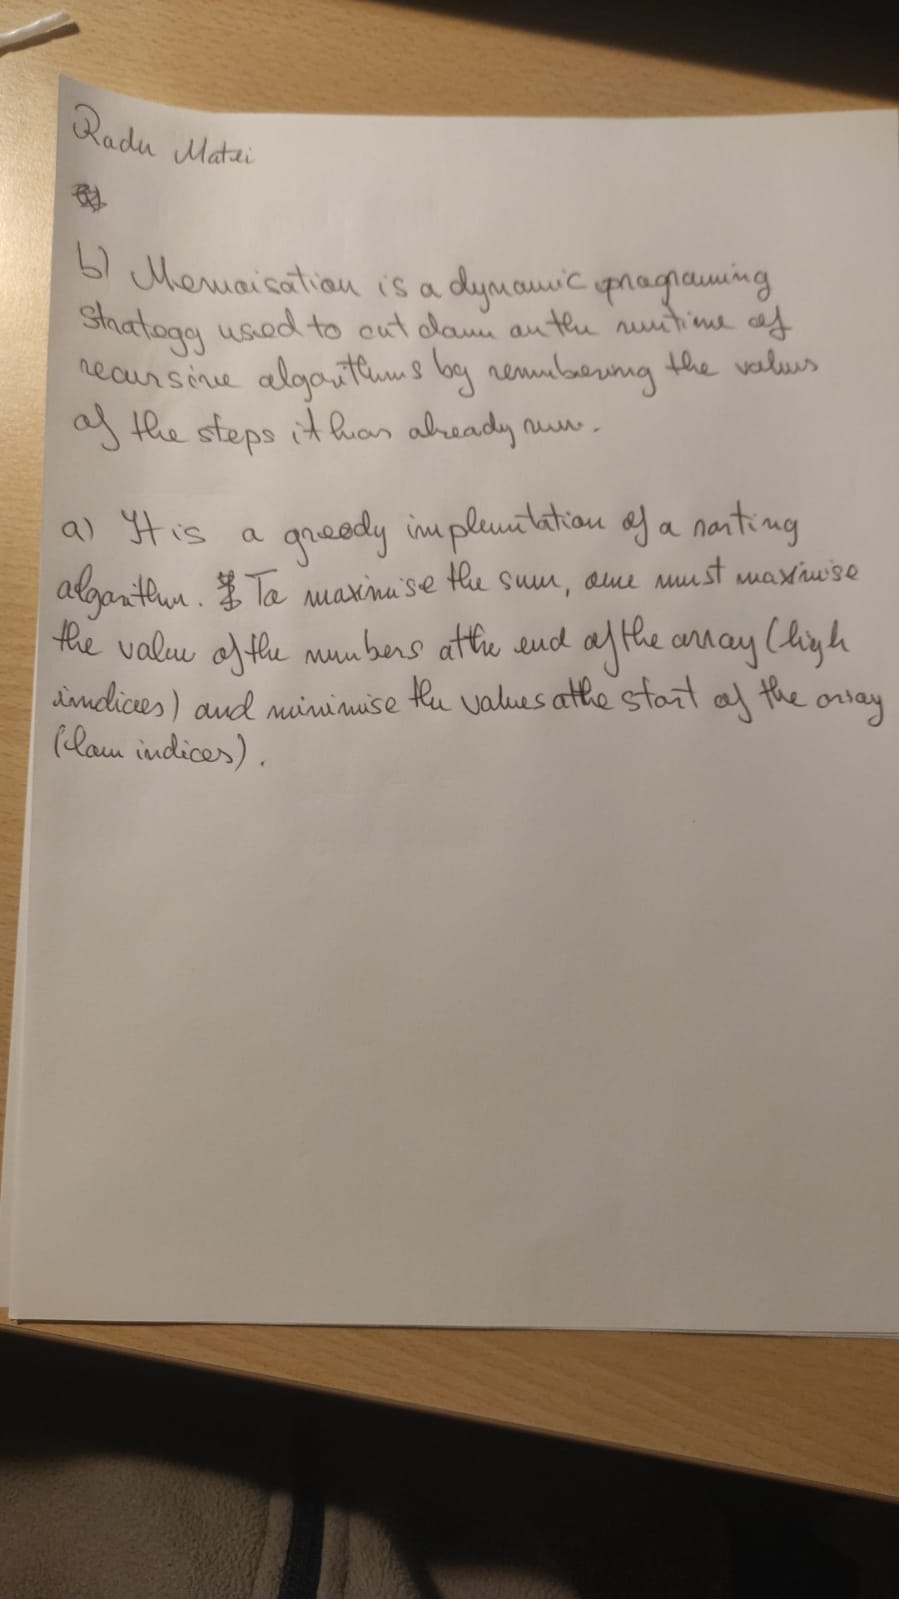 Radu Matei
b) Memoisation is a dynamic programing
strategy used to cut down on the runtime of
recursive algorithms by remembering the values
of the steps it has already run.
a) It is a greedy implementation of a sorting
algorithm. To maximise the sum, one must maximise
the value of the numbers at the end of the array (high
indices) and minimise the values at the start of the array
(low indices).